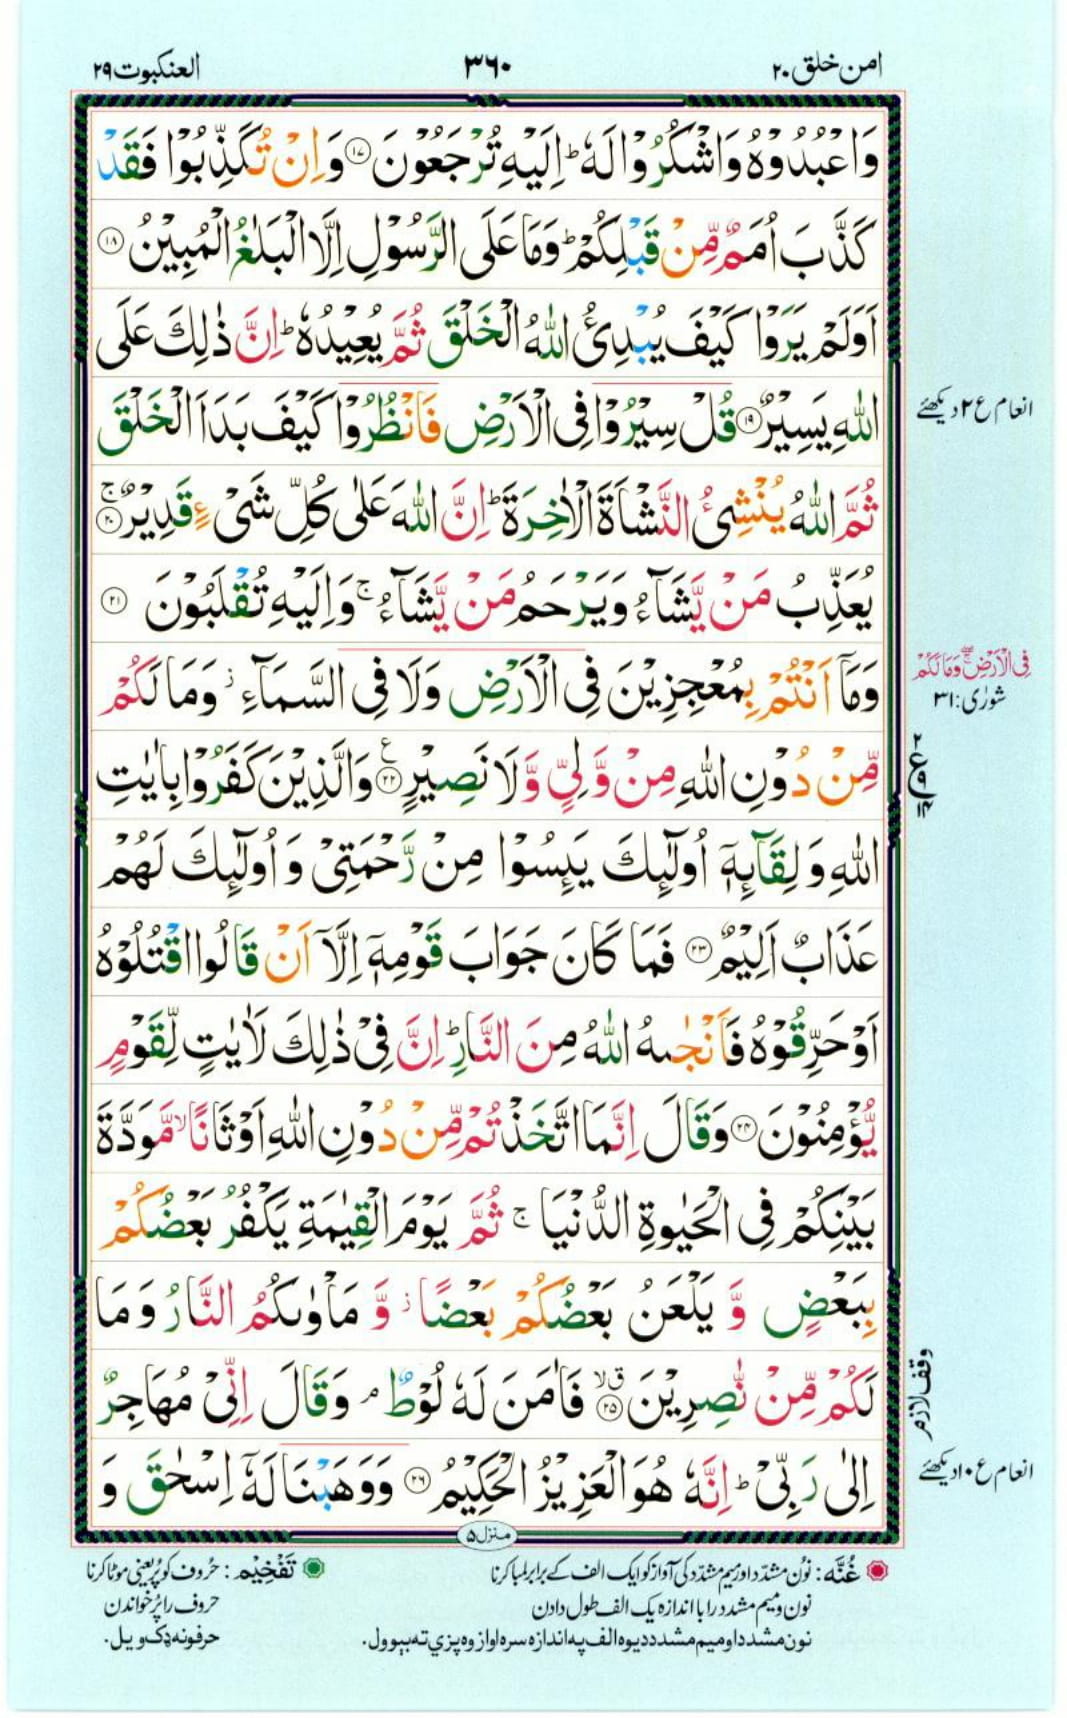 امن خلق ۲۰
۳۶۰
العنکبوت ۲۹
وَاعْبُدُوْهُ وَاشْكُرُوْا لَهٗ ؕ اِلَيْهِ تُرْجَعُوْنَ ۝۱۷ وَاِنْ تُكَذِّبُوْا فَقَدْ
كَذَّبَ اُمَمٌ مِّنْ قَبْلِكُمْ ؕ وَمَا عَلَى الرَّسُوْلِ اِلَّا الْبَلٰغُ الْمُبِيْنُ ۝۱۸
اَوَلَمْ يَرَوْا كَيْفَ يُبْدِئُ اللّٰهُ الْخَلْقَ ثُمَّ يُعِيْدُهٗ ؕ اِنَّ ذٰلِكَ عَلَى
اللّٰهِ يَسِيْرٌ ۝۱۹ قُلْ سِيْرُوْا فِى الْاَرْضِ فَانْظُرُوْا كَيْفَ بَدَاَ الْخَلْقَ
انعام ع۲ دیکھئے
ثُمَّ اللّٰهُ يُنْشِئُ النَّشْاَةَ الْاٰخِرَةَ ؕ اِنَّ اللّٰهَ عَلٰى كُلِّ شَىْءٍ قَدِيْرٌ ۚ۝۲۰
يُعَذِّبُ مَنْ يَّشَآءُ وَيَرْحَمُ مَنْ يَّشَآءُ ۚ وَاِلَيْهِ تُقْلَبُوْنَ ۝۲۱
وَمَاۤ اَنْتُمْ بِمُعْجِزِيْنَ فِى الْاَرْضِ وَلَا فِى السَّمَآءِ ز وَمَا لَكُمْ
فِى الْاَرْضِ ۖۚ وَمَا لَكُمْ
شورٰی: ۳۱
مِّنْ دُوْنِ اللّٰهِ مِنْ وَّلِيٍّ وَّلَا نَصِيْرٍ ۝۲۲ ع وَالَّذِيْنَ كَفَرُوْا بِاٰيٰتِ
اللّٰهِ وَلِقَآئِهٖۤ اُولٰٓئِكَ يَئِسُوْا مِنْ رَّحْمَتِىْ وَاُولٰٓئِكَ لَهُمْ
عَذَابٌ اَلِيْمٌ ۝۲۳ فَمَا كَانَ جَوَابَ قَوْمِهٖۤ اِلَّاۤ اَنْ قَالُوا اقْتُلُوْهُ
اَوْ حَرِّقُوْهُ فَاَنْجٰىهُ اللّٰهُ مِنَ النَّارِ ؕ اِنَّ فِىْ ذٰلِكَ لَاٰيٰتٍ لِّقَوْمٍ
يُّؤْمِنُوْنَ ۝۲۴ وَقَالَ اِنَّمَا اتَّخَذْتُمْ مِّنْ دُوْنِ اللّٰهِ اَوْثَانًا ۙ مَّوَدَّةَ
بَيْنِكُمْ فِى الْحَيٰوةِ الدُّنْيَا ۚ ثُمَّ يَوْمَ الْقِيٰمَةِ يَكْفُرُ بَعْضُكُمْ
بِبَعْضٍ وَّ يَلْعَنُ بَعْضُكُمْ بَعْضًا ز وَّ مَاْوٰىكُمُ النَّارُ وَمَا
لَكُمْ مِّنْ نّٰصِرِيْنَ ۝۲۵ ق لا فَاٰمَنَ لَهٗ لُوْطٌ ۘ وَقَالَ اِنِّىْ مُهَاجِرٌ
وقف لازم
اِلٰى رَبِّىْ ؕ اِنَّهٗ هُوَ الْعَزِيْزُ الْحَكِيْمُ ۝۲۶ وَوَهَبْنَا لَهٗۤ اِسْحٰقَ وَ
انعام ع۱۰ دیکھئے
منزل ۵
غُنَّه: نون مشدد اور میم مشدد کی آواز کو ایک الف کے برابر لمبا کرنا
نون و میم مشدد را با اندازہ یک الف طول دادن
نون مشدد او میم مشدد دیوه الف په اندازه سره اواز وه پزې ته بېوول.
تَفْخِيْم: حُروف کو پُر یعنی موٹا کرنا
حروف را پُر خواندن
حرفونه ډک ویل.